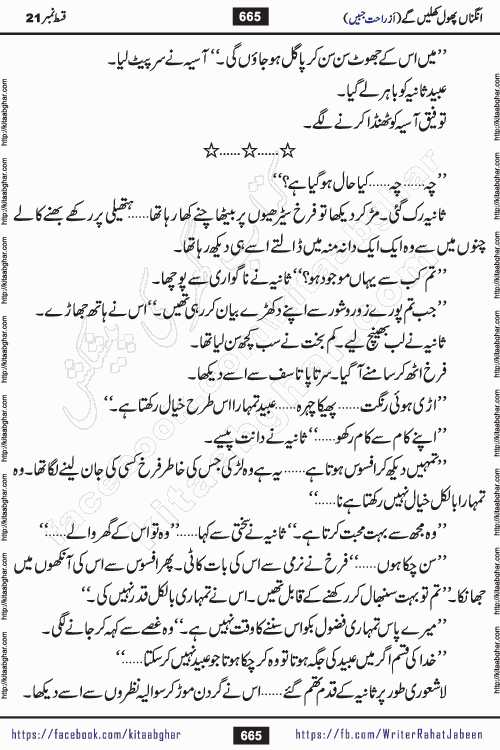 انگناں پھول کھلیں گے (از راحت جبیں) 665 قسط نمبر 21
’’میں اس کے جھوٹ سن سن کر پاگل ہو جاؤں گی۔‘‘ آسیہ نے سر پیٹ لیا۔
عبید ثانیہ کو باہر لے گیا۔
توفیق آسیہ کو ٹھنڈا کرنے لگے۔
☆......☆......☆
’’چہ......چہ......کیا حال ہو گیا ہے؟‘‘
ثانیہ رک گئی۔ مڑ کر دیکھا تو فرخ سیڑھیوں پر بیٹھا چنے کھا رہا تھا......ہتھیلی پر رکھے بھنے کالے
چنوں میں سے وہ ایک ایک دانہ منہ میں ڈالتے اسے ہی دیکھ رہا تھا۔
’’تم کب سے یہاں موجود ہو؟‘‘ ثانیہ نے ناگواری سے پوچھا۔
’’جب تم پورے زور و شور سے اپنے دکھڑے بیان کر رہی تھیں۔‘‘ اس نے ہاتھ جھاڑے۔
ثانیہ نے لب بھینچ لیے۔ کم بخت نے سب کچھ سن لیا تھا۔
فرخ اٹھ کر سامنے آ گیا۔ سرتاپا تاسف سے اسے دیکھا۔
’’اڑی ہوئی رنگت......پھیکا چہرہ......عبید تمہارا اس طرح خیال رکھتا ہے۔‘‘
’’اپنے کام سے کام رکھو......‘‘ ثانیہ نے دانت پیسے۔
’’تمہیں دیکھ کر افسوس ہوتا ہے......یہ ہے وہ لڑکی جس کی خاطر فرخ کسی کی جان لینے لگا تھا۔ وہ
تمہارا بالکل خیال نہیں رکھتا ہے نا......‘‘
’’وہ مجھ سے بہت محبت کرتا ہے۔‘‘ ثانیہ نے سختی سے کہا......’’وہ تو اس کے گھر والے......‘‘
’’سن چکا ہوں......‘‘ فرخ نے نرمی سے اس کی بات کاٹی۔ پھر افسوس سے اس کی آنکھوں میں
جھانکا۔ ’’تم تو بہت سنبھال کر رکھنے کے قابل تھیں۔ اس نے تمہاری بالکل قدر نہیں کی۔‘‘
’’میرے پاس تمہاری فضول بکواس سننے کا وقت نہیں ہے۔‘‘ وہ غصے سے کہہ کر جانے لگی۔
’’خدا کی قسم اگر میں عبید کی جگہ ہوتا تو وہ کر چکا ہوتا جو عبید نہیں کر سکتا......‘‘
لاشعوری طور پر ثانیہ کے قدم تھم گئے......اس نے گردن موڑ کر سوالیہ نظروں سے اسے دیکھا۔
https://facebook.com/kitaabghar 665 https://fb.com/WriterRahatJabeen
http://kitaabghar.com http://kitaabghar.com http://kitaabghar.com http://kitaabghar.com http://kitaabghar.com http://kitaabghar.com http://kitaabghar.com http://kitaabghar.com